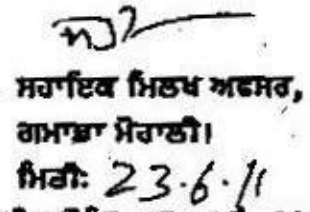 ਸਹਾਇਕ ਮਿਲਖ ਅਫਸਰ,
ਗਮਾਡਾ ਮੋਹਾਲੀ।
ਮਿਤੀ: 23.6.11